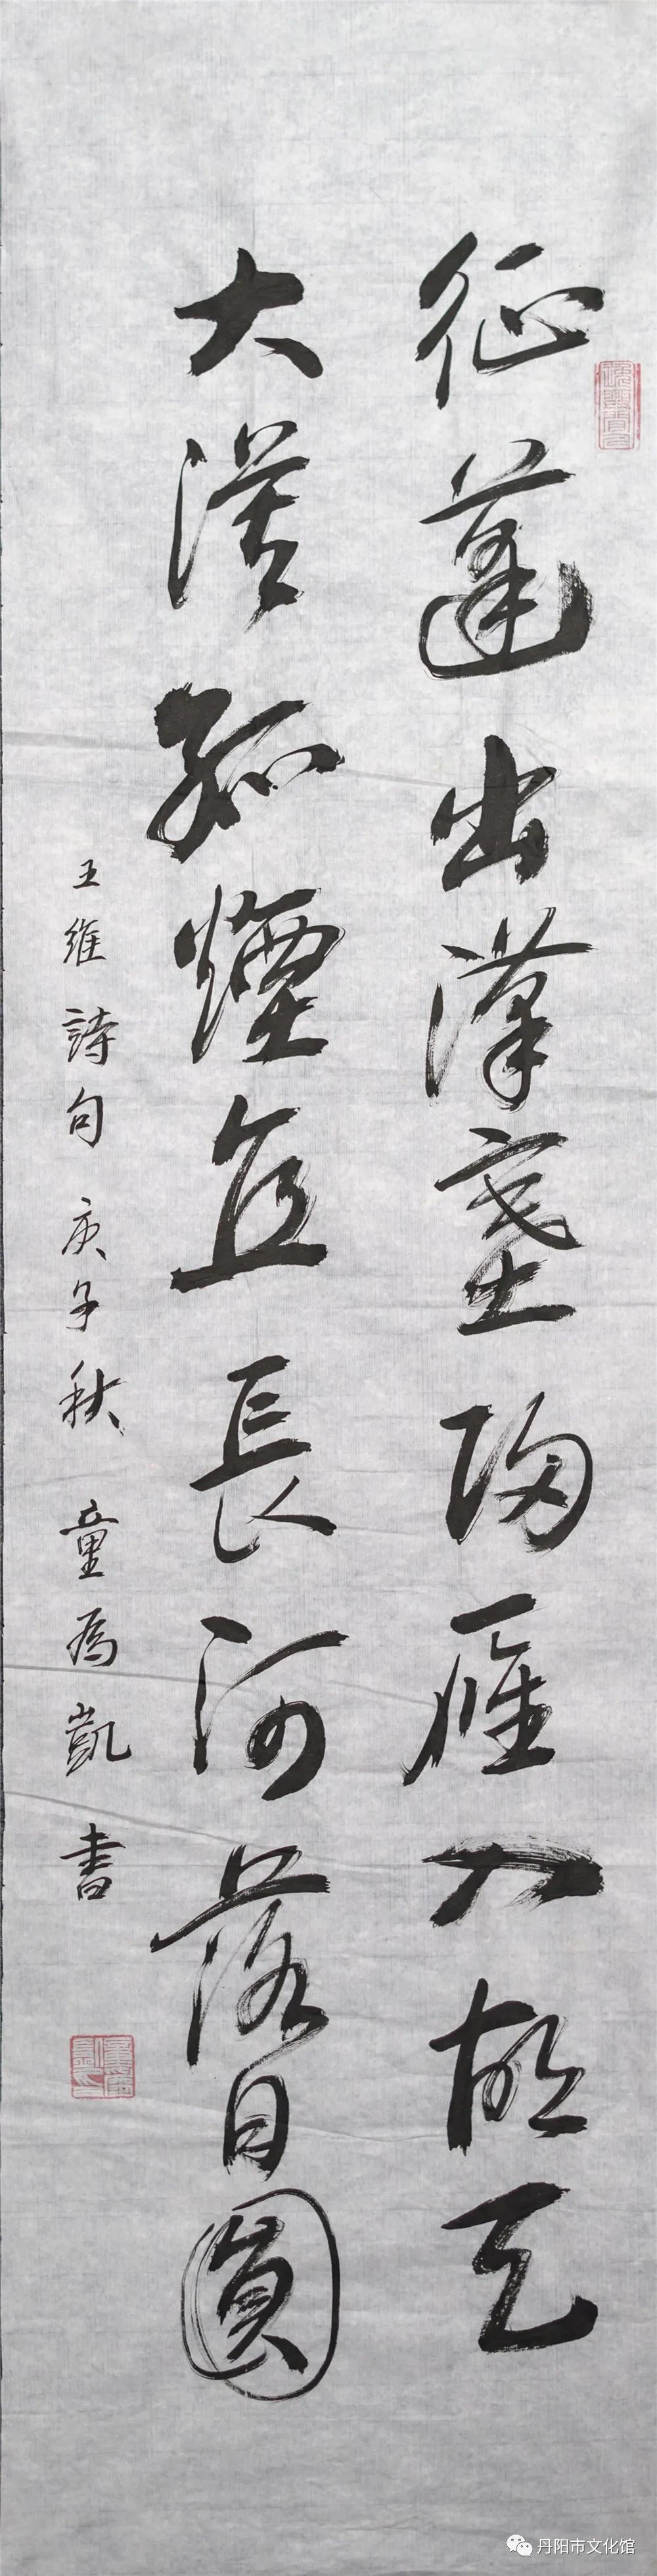 征蓬出漢塞歸雁入胡天
大漠孤煙直長河落日圓
王維詩句 庚子秋 童為凱書
丹阳市文化馆